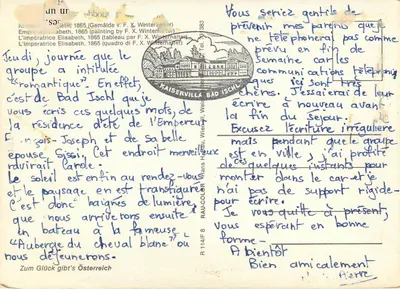 Elisabeth, 1865 (Gemälde v. F. X. Winterhalter)
Empress Elisabeth, 1865 (painting by F. X. Winterhalter)
L'impératrice Elisabeth, 1865 (tableau par F. X. Winterhalter)
L'imperatrice Elisabeth, 1865 (quadro di F. X. Winterhalter)
KAISERVILLA BAD ISCHL
Jeudi, journée que le
groupe a intitulée
"romantique". En effet,
c'est de Bad Ischl que je
vous écris ces quelques mots, de
la résidence d'été de l'Empereur
François-Joseph et de sa belle
épouse, Sissi. Cet endroit merveilleux
Le soleil est enfin au rendez-vous
et le paysage en est transfiguré
C'est donc baignés de lumière,
que nous arriverons ensuite
en bateau à la fameuse
"Auberge du cheval blanc" où
nous déjeunerons.
Zum Glück gibt's Österreich
R 114/F 8
RAU-COLOR
383
Vous seriez gentils de
prévenir mes parents que je
ne téléphonerai pas comme
prévu en fin de
semaine car les
communications téléphoniques
ici sont très
chères. J'essaierai de leur
écrire à nouveau avant
la fin du séjour.
Excusez l'écriture irrégulière
mais pendant que le groupe
est en ville, j'ai profité
de quelques instants pour
monter dans le car et je
n'ai pas de support rigide
pour écrire.
Je vous quitte à présent,
vous espérant en bonne
forme -
A bientôt
Bien amicalement
Pierre